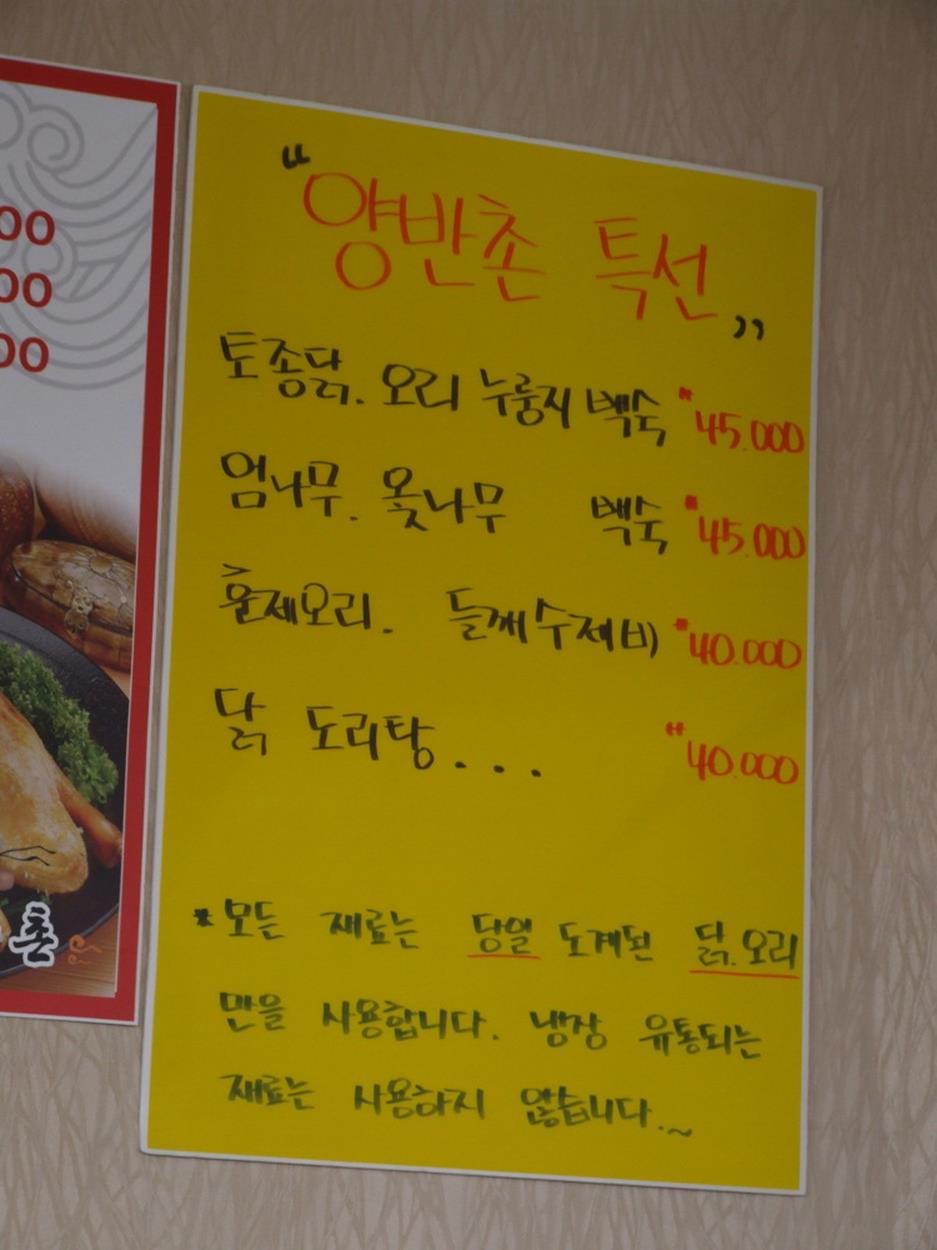 00
00
00
촌
"양반촌 특선"
토종닭. 오리 누룽지 백숙 "45.000
엄나무. 옻나무 백숙 "45.000
훈제오리. 들깨수제비 "40.000
닭 도리탕... "40.000
* 모든 재료는 당일 도계된 닭.오리
만을 사용합니다. 냉장 유통되는
재료는 사용하지 않습니다.~